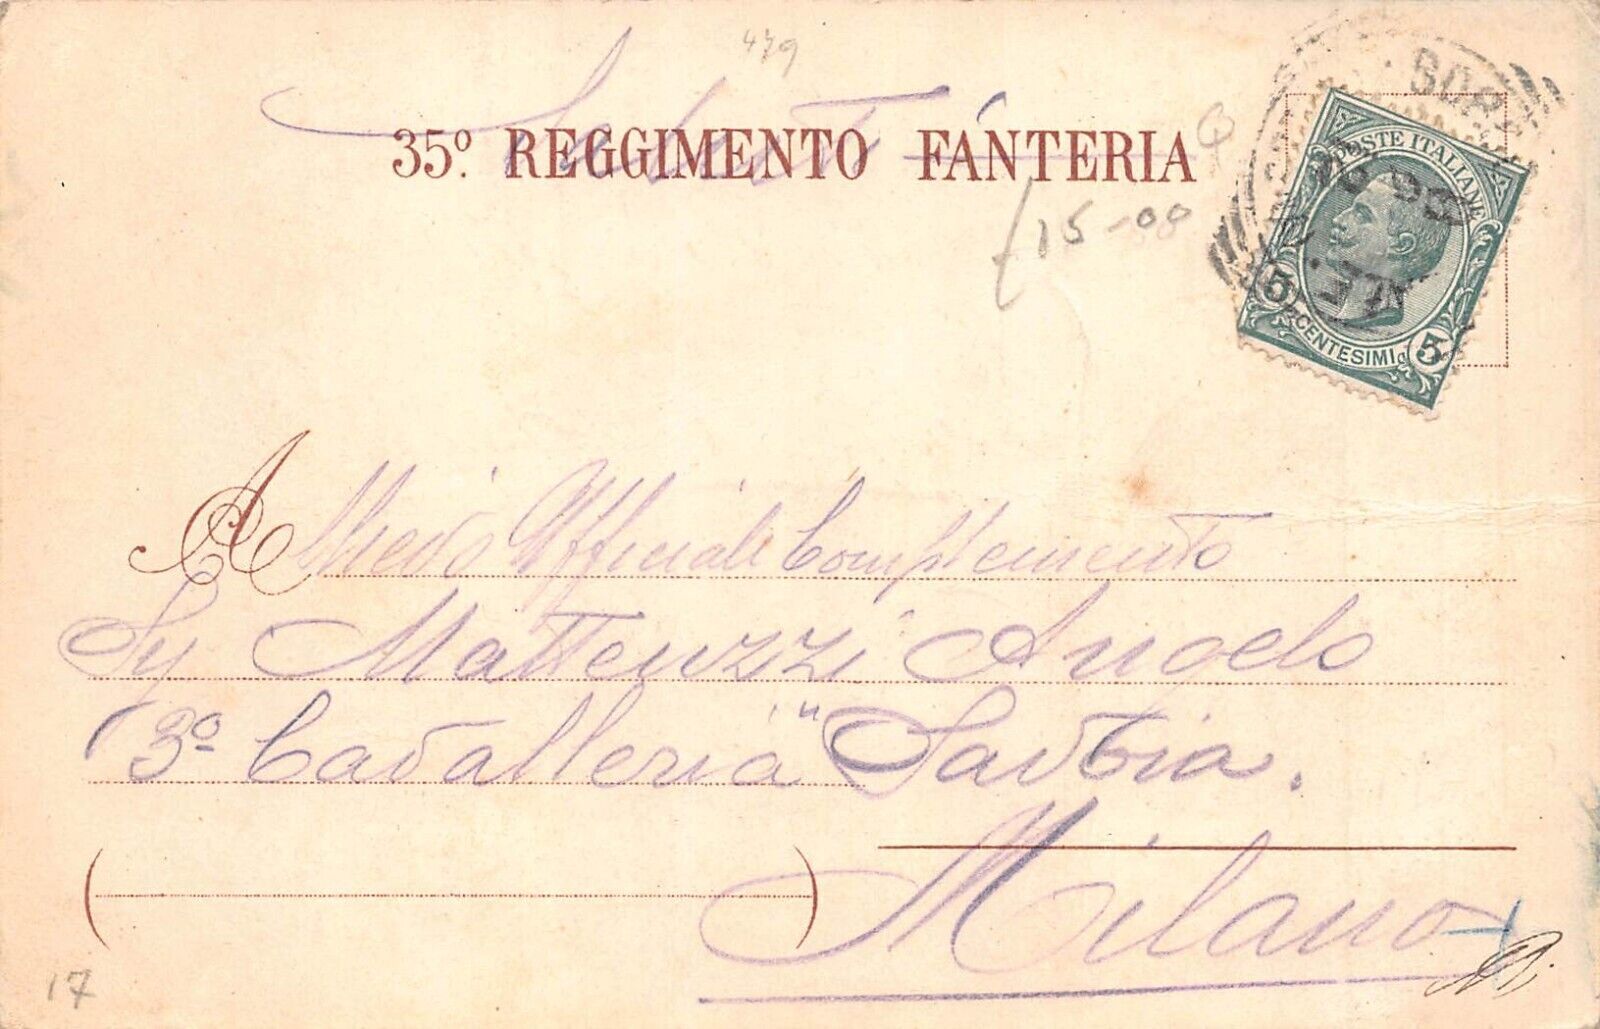 479
35º. REGGIMENTO FANTERIA
15-00
POSTE ITALIANE
5 CENTESIMI 5
Allievo Ufficiale Complemento
Sig Matteuzzi Angelo
3º Cavalleria "Savoia.
Milano
17